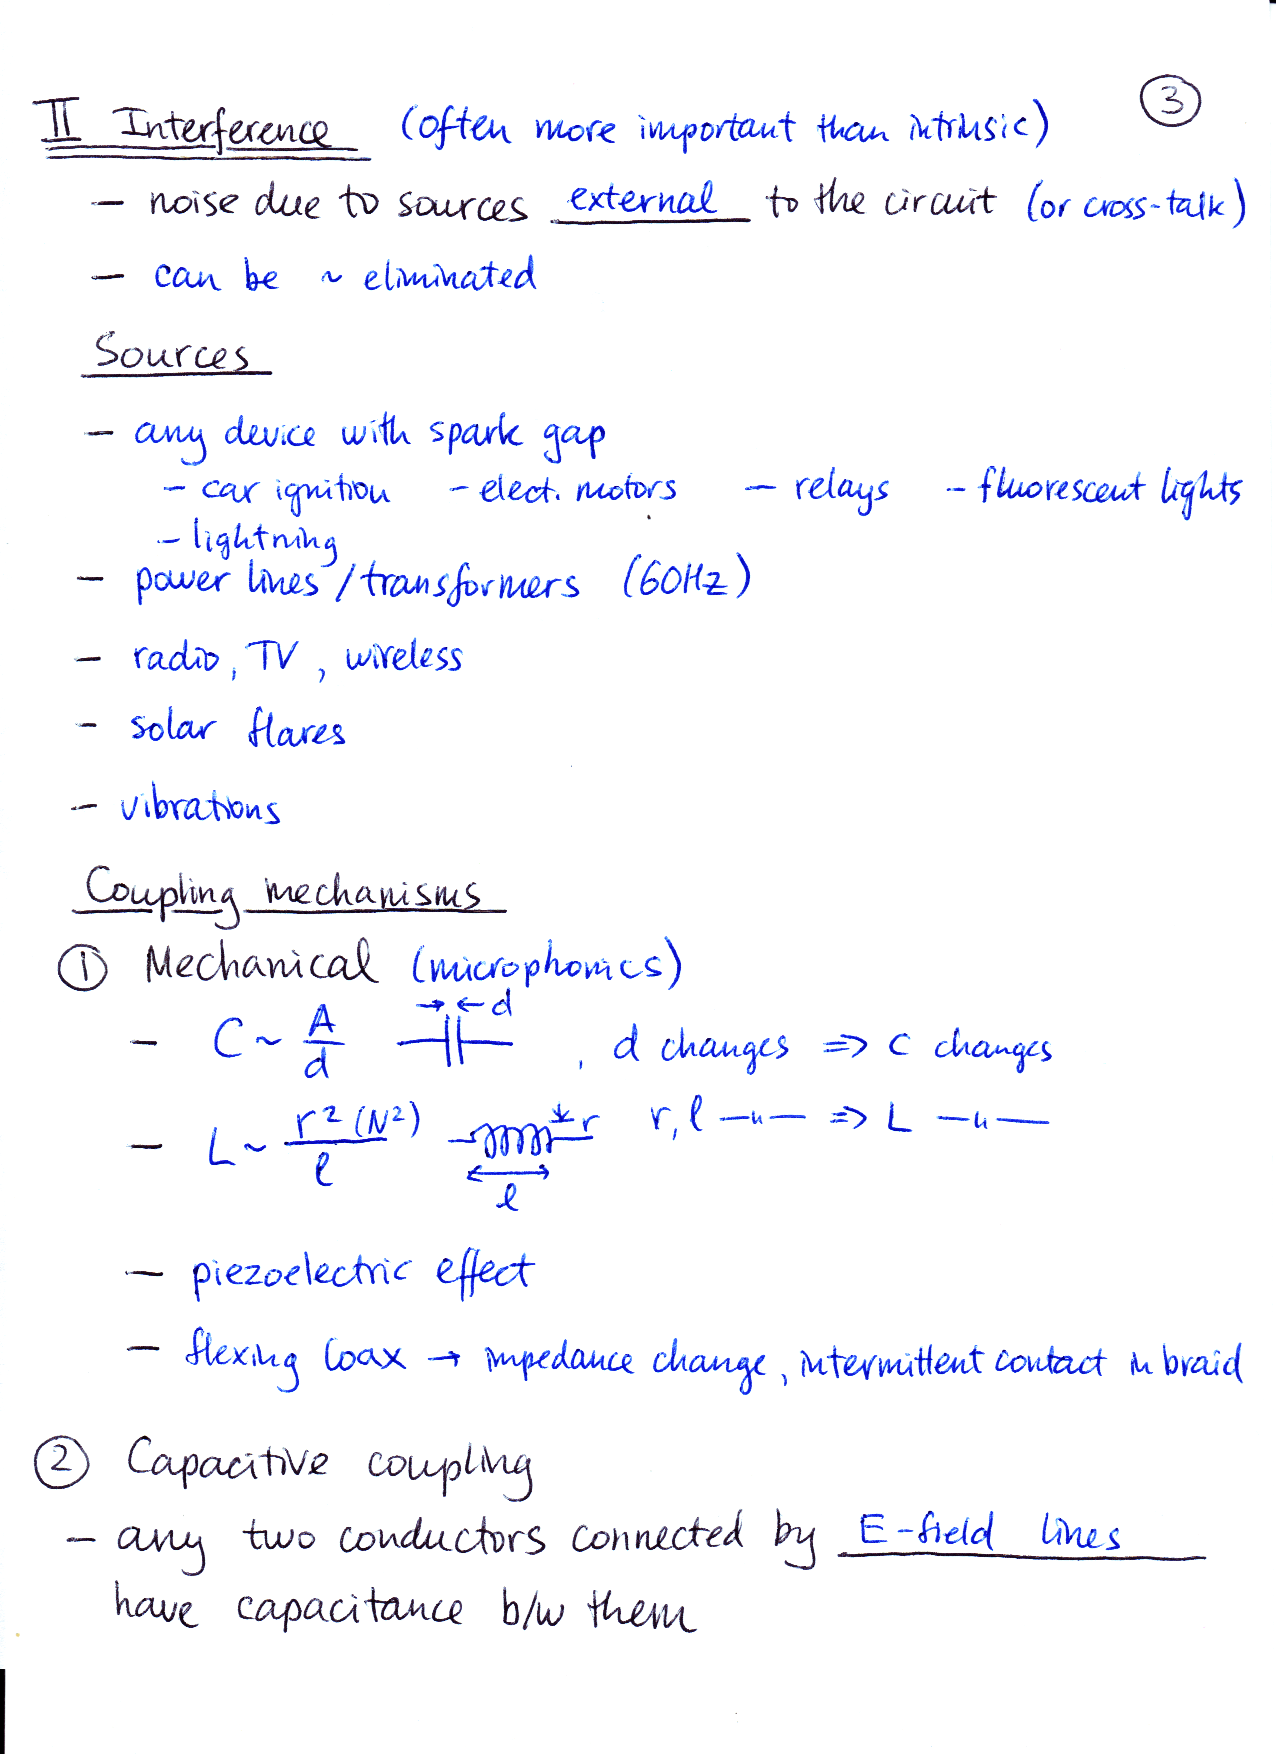 II Interference (often more important than intrinsic) 3
- noise due to sources external to the circuit (or cross-talk)
- can be ~ eliminated
Sources
- any device with spark gap
- car ignition - elect. motors - relays - fluorescent lights
- lightning
- power lines / transformers (60Hz)
- radio, TV, wireless
- solar flares
- vibrations
Coupling mechanisms
1 Mechanical (microphonics)
- C ~ A/d → ← d , d changes => C changes
- L ~ r²(N²)/l r l r, l —"— => L —"—
- piezoelectric effect
- flexing coax → impedance change, intermittent contact in braid
2 Capacitive coupling
- any two conductors connected by E-field lines
have capacitance b/w them